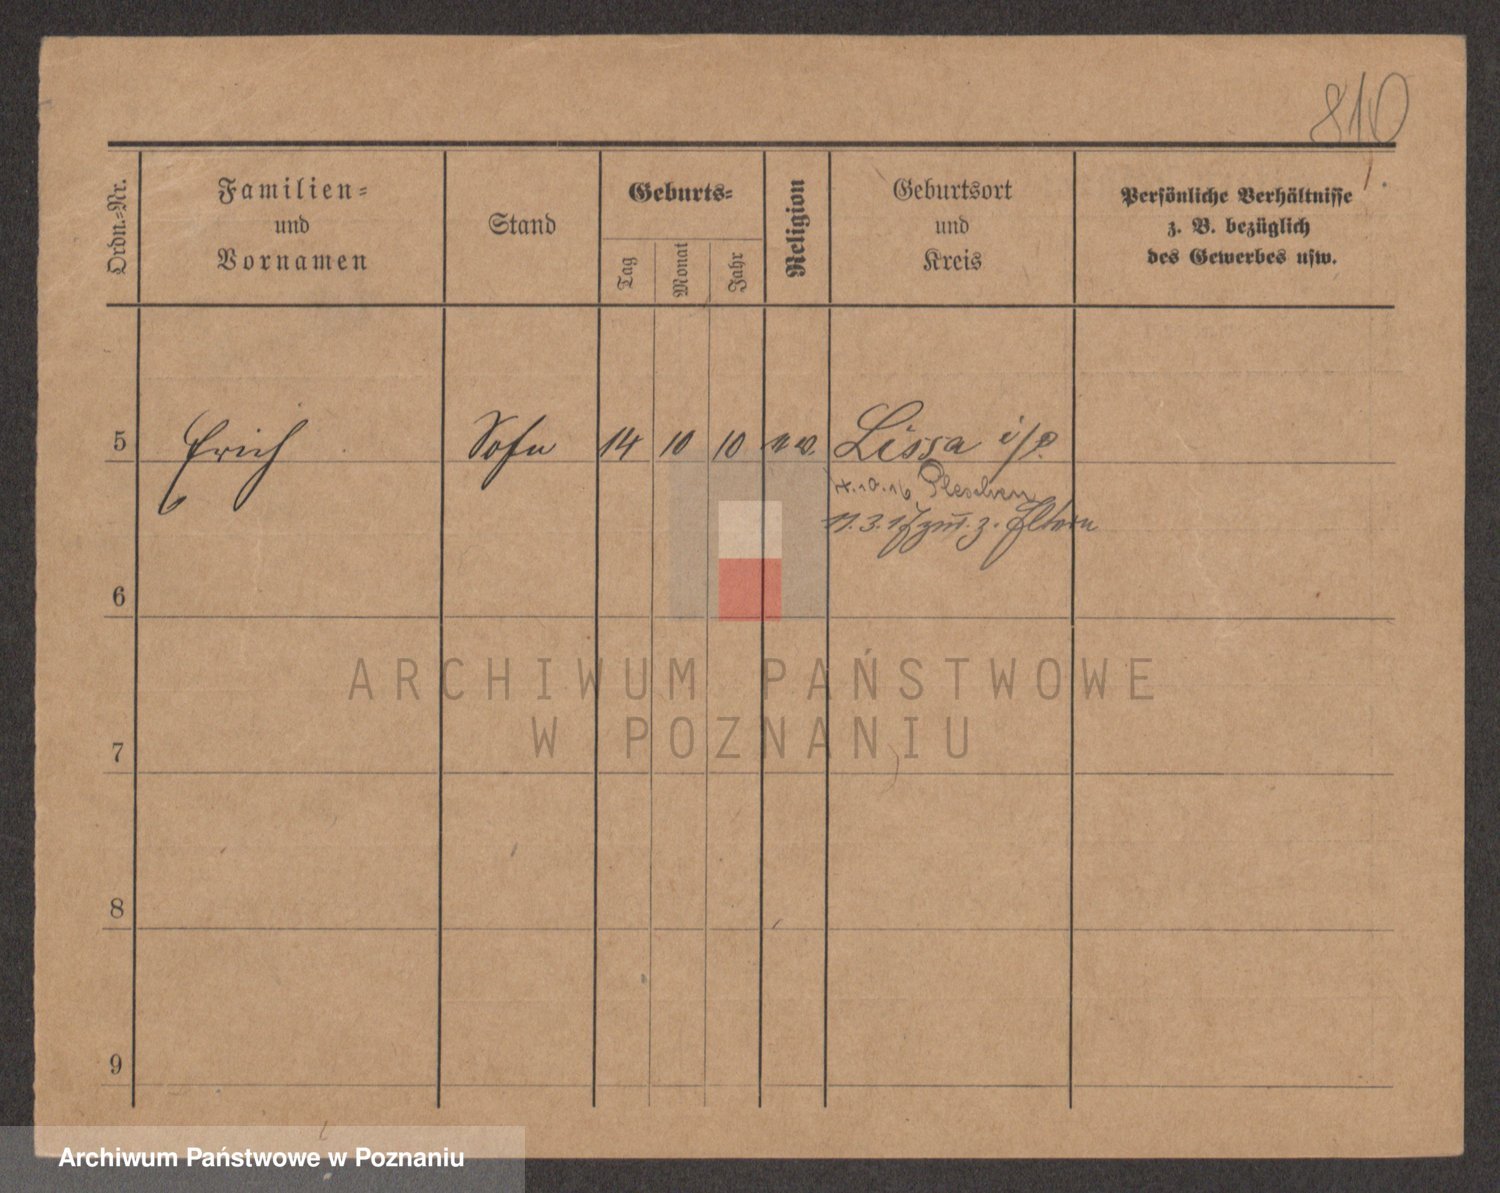 810
Ordn.-Nr.
Familien-
und
Vornamen
Stand
Geburts-
Tag
Monat
Jahr
Religion
Geburtsort
und
Kreis
Persönliche Verhältnisse
z. B. bezüglich
des Gewerbes usw.
5 Erich Sohn 14 10 10 Lissa i/P.
Pleschen
11.3.17 z. Eltern
6
7
8
9
ARCHIWUM PAŃSTWOWE
W POZNANIU
Archiwum Państwowe w Poznaniu